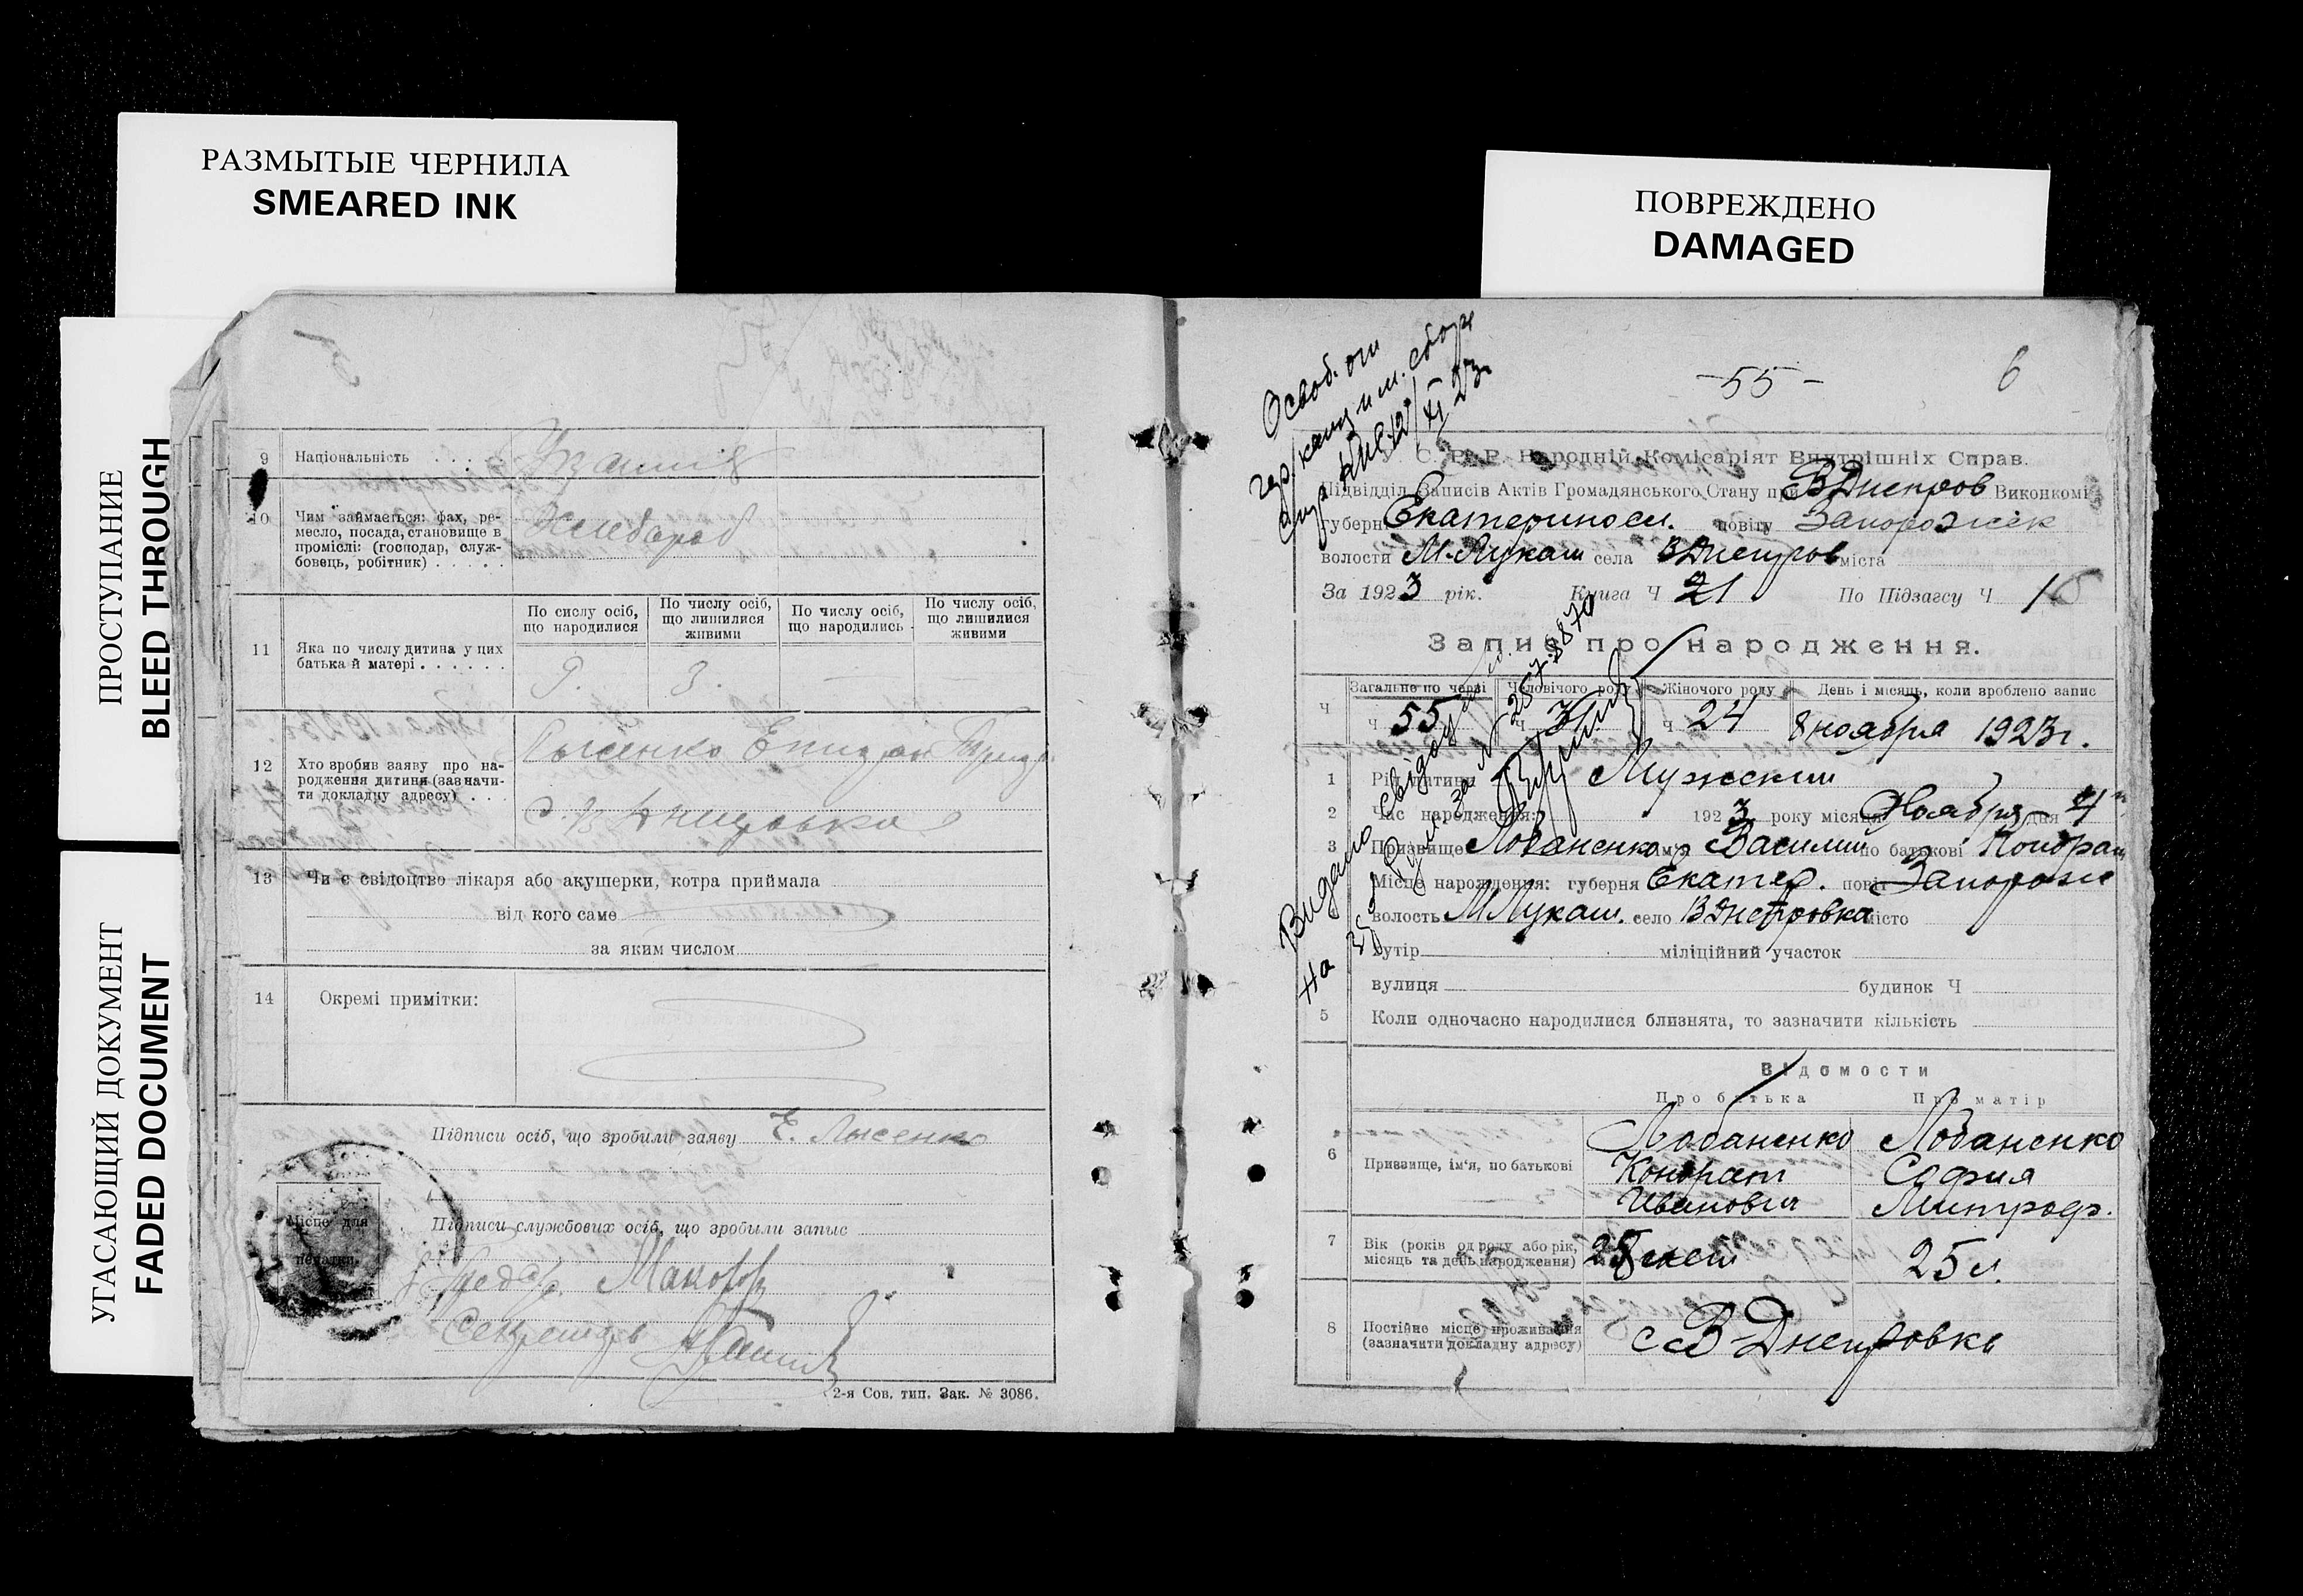 РАЗМЫТЫЕ ЧЕРНИЛА
SMEARED INK
ПРОСТУПАНИЕ
BLEED THROUGH
УГАСАЮЩИЙ ДОКУМЕНТ
FADED DOCUMENT
ПОВРЕЖДЕНО
DAMAGED
5
9 Національність . . . .
10 Чим займається: фах, ре-
месло, посада, становище в
промислі: (господар, служ-
бовець, робітник) . . . . . Хлебороб
По числу осіб, що народилися
По числу осіб, що лишилися живими
По числу осіб, що народились
По числу осіб, що лишилися живими
11 Яка по числу дитина у цих
батька й матері . . . . . . 9. 3. —
12 Хто зробив заяву про на-
родження дитини (зазначи-
ти докладну адресу) . . . Лысенко
13 Чи є свідоцтво лікаря або акушерки, котра приймала
від кого саме
за яким числом
14 Окремі примітки:
Підписи осіб, що зробили заяву Е. Лысенко
Підписи службових осіб, що зробыли запыс
Місце для
печатки
Секретарь
2-я Сов. тип. Зак. № 3086.
Освоб. от
-55-
6
У. С. Р. Р. Народній Комісаріят Внутрішніх Справ.
Підвідділ Записів Актів Громадянського Стану при В Днепров Виконкомі
губерн Екатериносл. повіту Запорожск
волости М-Лукаш села ВДнепров міста
За 1923 рік. Книга Ч 21 По Підзагсу Ч
Запис про народження.
Загальне по черзі Чоловічого роду Жіночого роду День і місяць, коли зроблено запис
Ч Ч 55 Ч 31 Ч 24 8 ноября 1923 г.
Видано свідоцтво
1 Рід дитини Мужский
2 Час народження: 1923 року місяця Ноября дня 4
3 Призвище Лобаненко ім'я Василий по батькові Кондрат
Місце народження: губерня Екатер. повіт Запорож
волость МЛукаш. село ВДнепровка місто
хутір міліційний участок
вулиця будинок Ч
5 Коли одночасно народилися близнята, то зазначити кількість
Відомости
Про батька Про матір
6 Призвище, ім'я, по батькові
Лобаненко Лобаненко
Кондрат София
Иванович Митроф.
7 Вік (років од роду або рік,
місяць та день народження) 28 лет 25 л.
8 Постійне місце проживання
(зазначити докладну адресу) с В-Днепровке